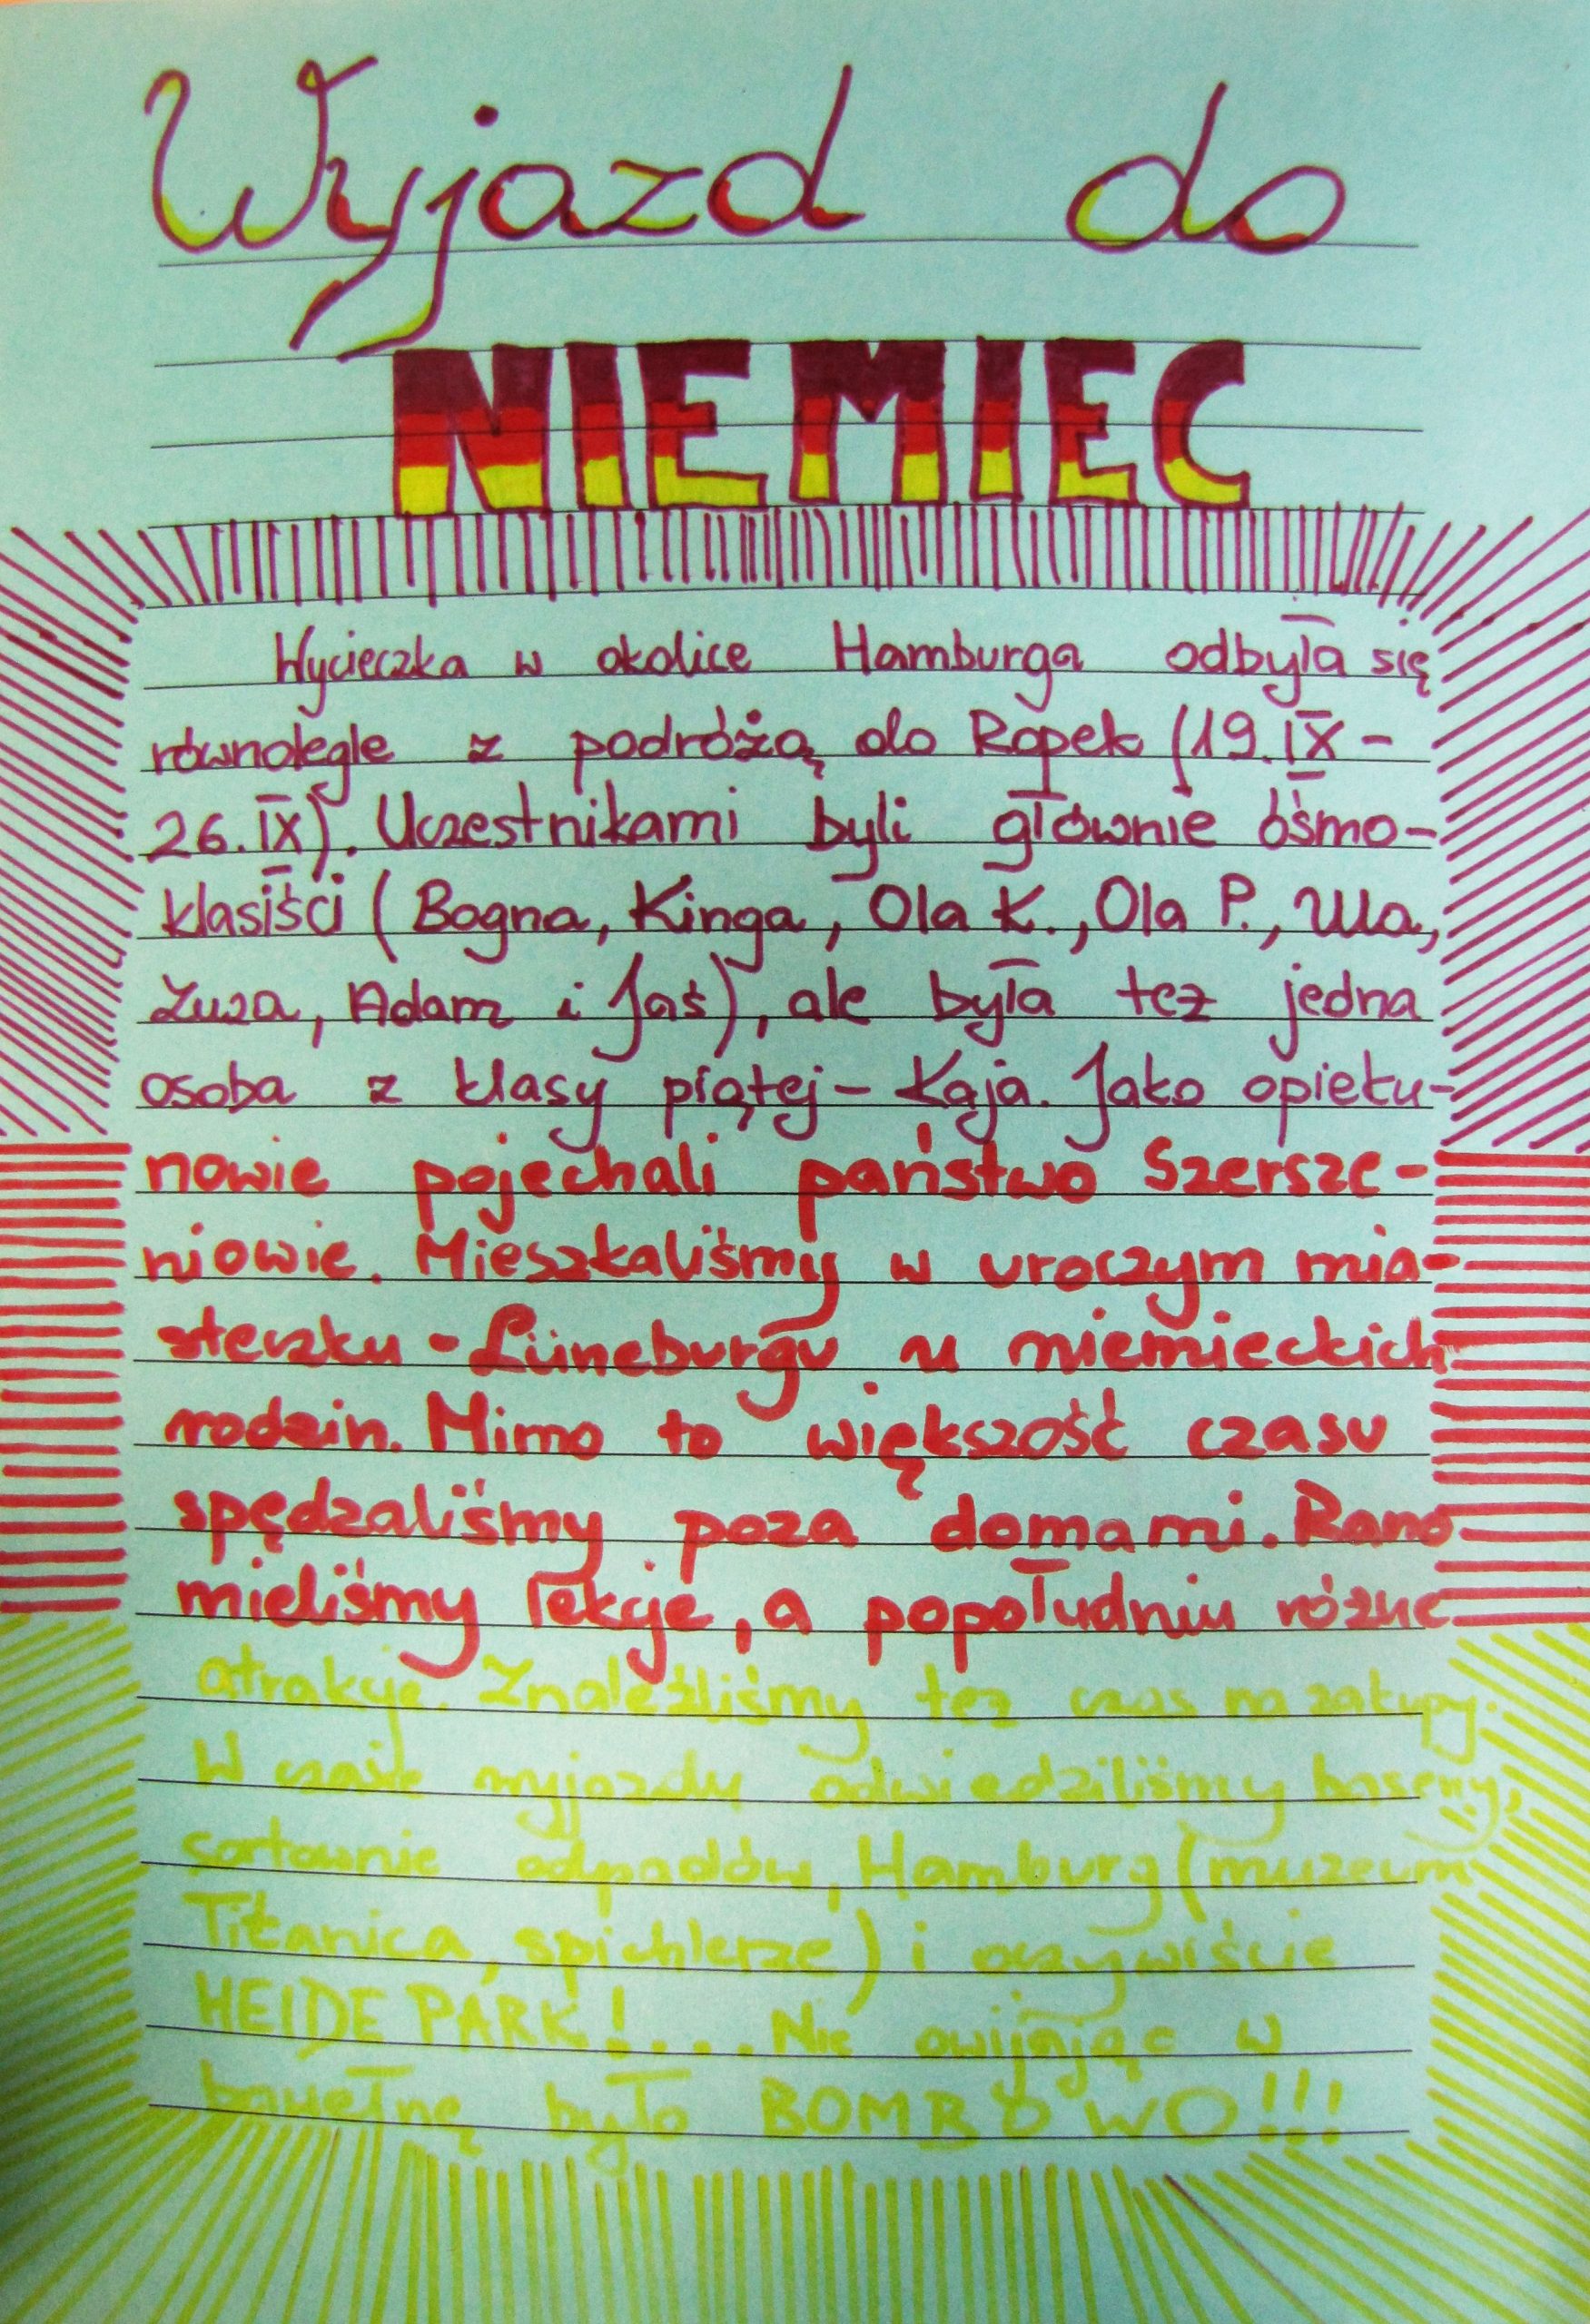 Wyjazd do
NIEMIEC
Wycieczka w okolice Hamburga odbyła się
równolegle z podróżą do Ropek (19.IX-
26.IX). Uczestnikami byli głównie ósmo-
klasiści (Bogna, Kinga, Ola K., Ola P., Ula,
Zuza, Adam i Jaś), ale była też jedna
osoba z klasy piątej - Kaja. Jako opieku-
nowie pojechali państwo Szersze-
niowie. Mieszkaliśmy w uroczym mia-
steczku - Lüneburgu u niemieckich
rodzin. Mimo to większość czasu
spędzaliśmy poza domami. Rano
mieliśmy lekcje, a popołudniu różne
atrakcje. Znaleźliśmy też czas na zakupy.
W czasie wyjazdu odwiedziliśmy baseny,
sortownie odpadów, Hamburg (muzeum
Titanica, spichlerze) i oczywiście
HEIDE PARK!.... Nie owijając w
bawełnę było BOMBOWO!!!